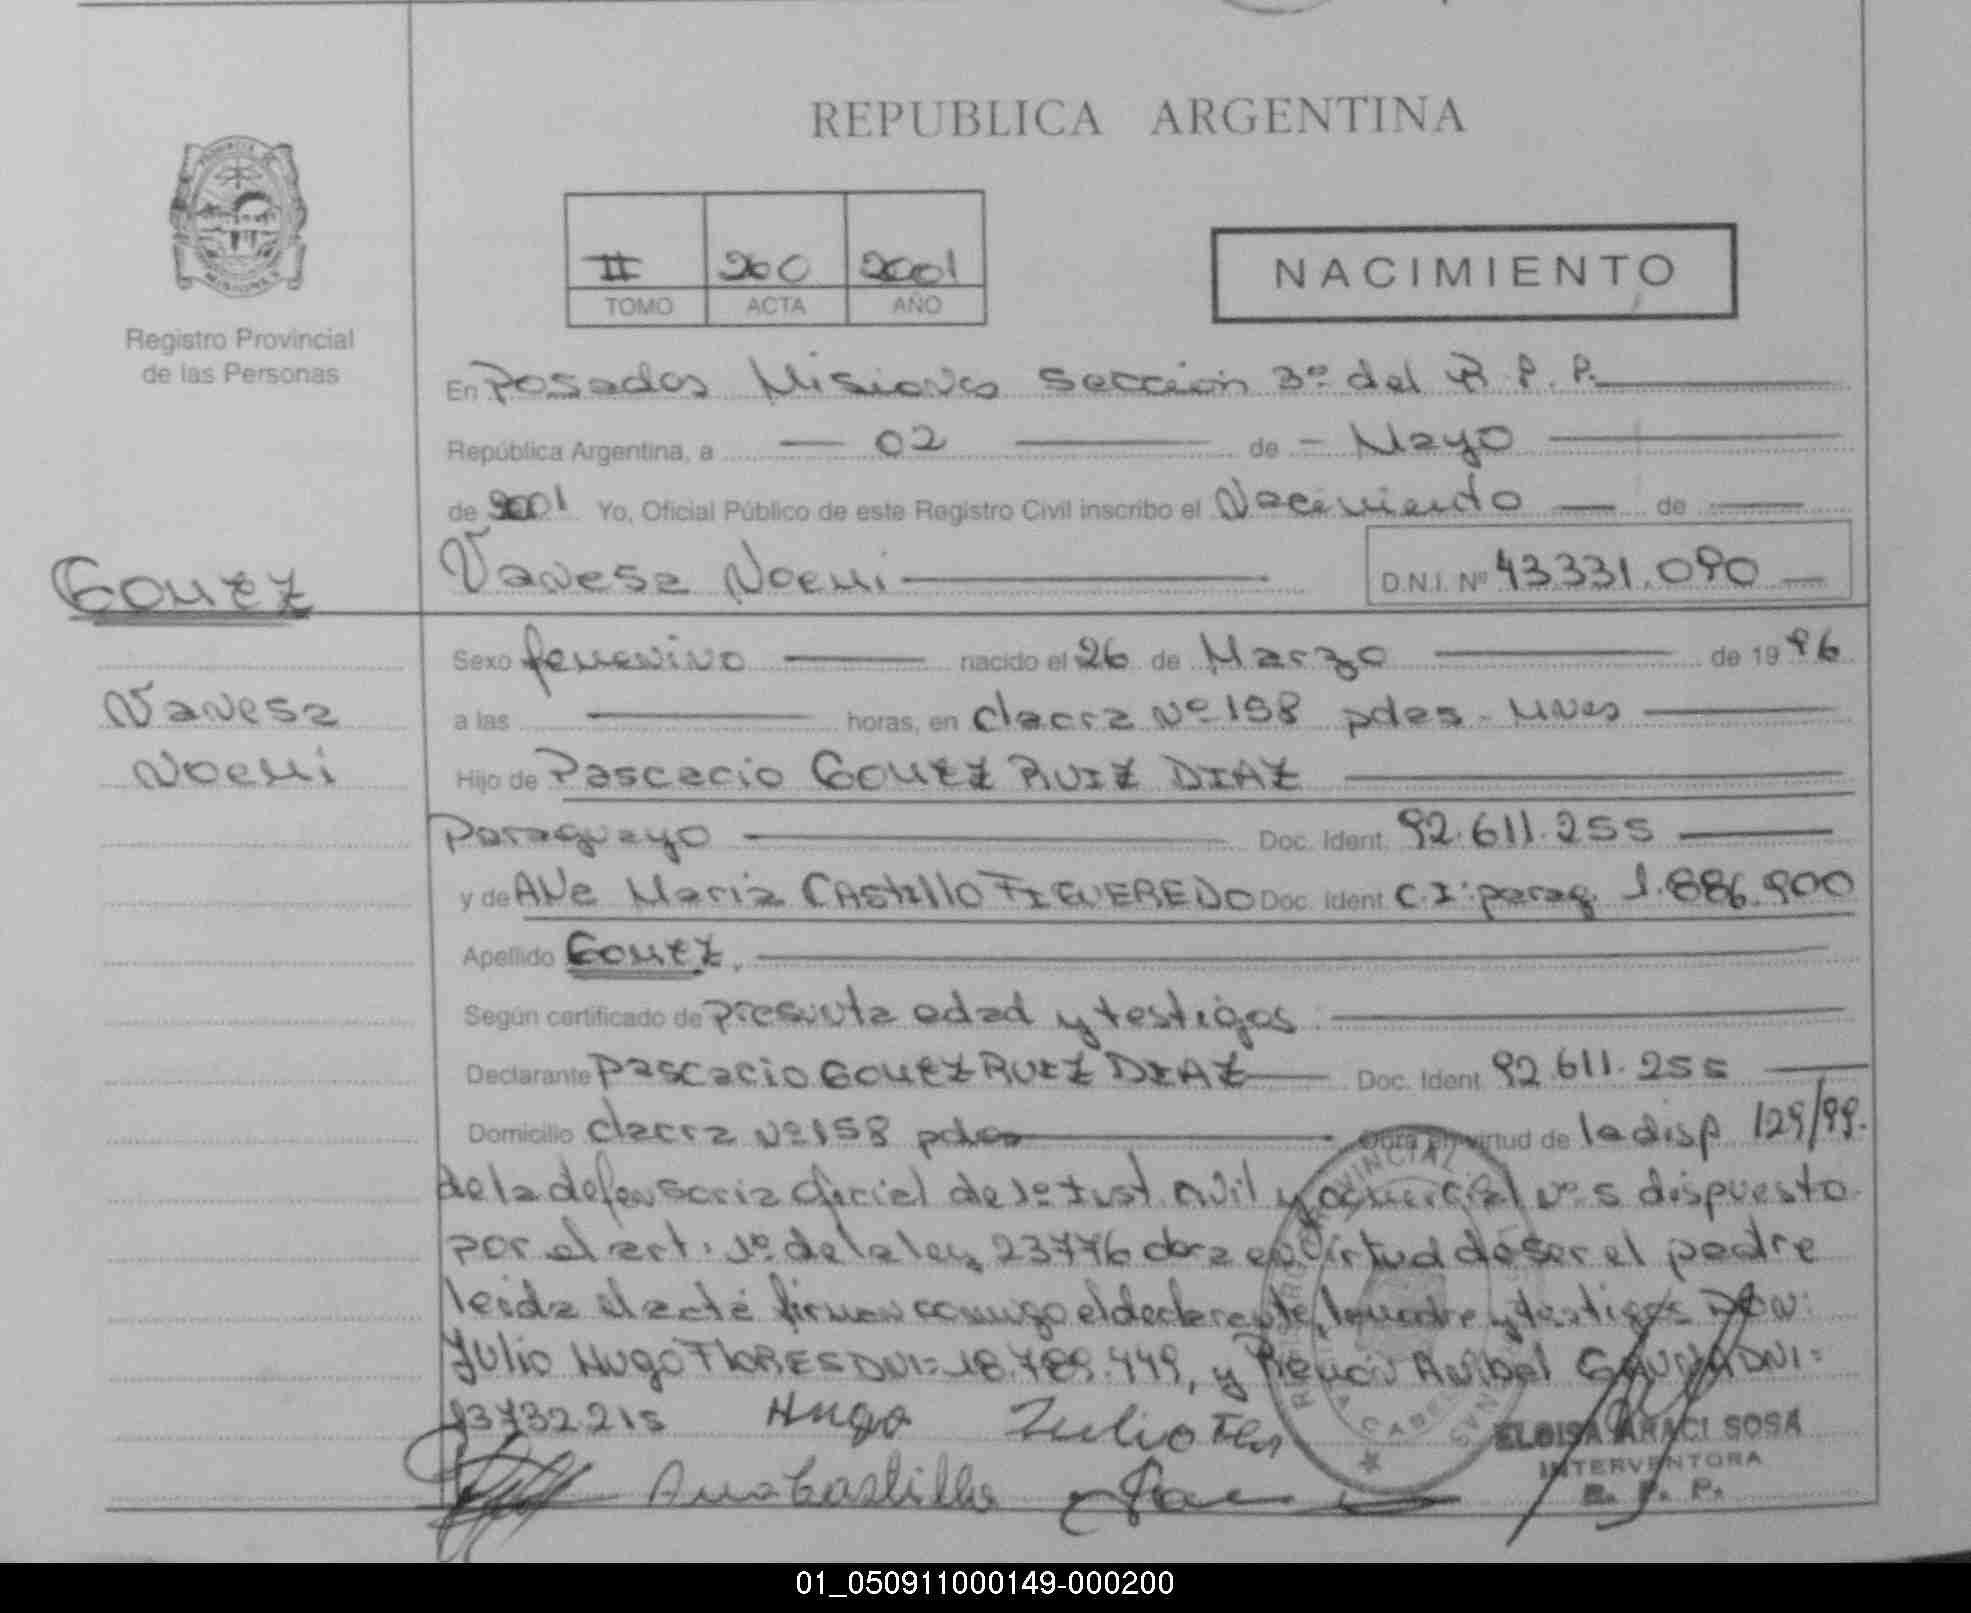 REPUBLICA ARGENTINA
II 200 2001
TOMO ACTA AÑO
NACIMIENTO
Registro Provincial
de las Personas
En Posadas Misiones Sección 3º del R. P. P.
República Argentina, a 02 de Mayo
de 2001 Yo, Oficial Público de este Registro Civil inscribo el Nacimiento de
GOMEZ
Vanesa Noemi
D.N.I. Nº 43.331.090
Sexo femenino nacido el 26 de Marzo de 1996
Vanesa
Noemi
a las horas, en chacra Nº 158 pdas - Mnes
Hijo de Pascacio GOMEZ RUIZ DIAZ
Paraguayo Doc. Ident. 92.611.255
y de Ana Maria CAStillo FIGUEREDO Doc. Ident. C.I. parag. 1.886.900
Apellido GOMEZ.
Según certificado de presunta edad y testigos
Declarante Pascacio GOMEZ RUIZ DIAZ Doc. Ident. 92.611.255
Domicilio chacra Nº 158 pdas Obra en virtud de la disp 129/99.
de la defensoria oficial de 1º Inst. civil y comercial Nº 5 dispuesto
por el art. 1º de la ley 23776 obra en virtud de ser el padre
leida el acta firman conmigo el declarante, la madre y testigos DON:
Julio Hugo FLORES DNI= 18.789.449, y Ramón Anibal GAUNA DNI=
13732215 Hugo Julio Flor
Ana Castillo
ELOISA ARACI SOSA
INTERVENTORA
R. P. P.
01_050911000149-000200